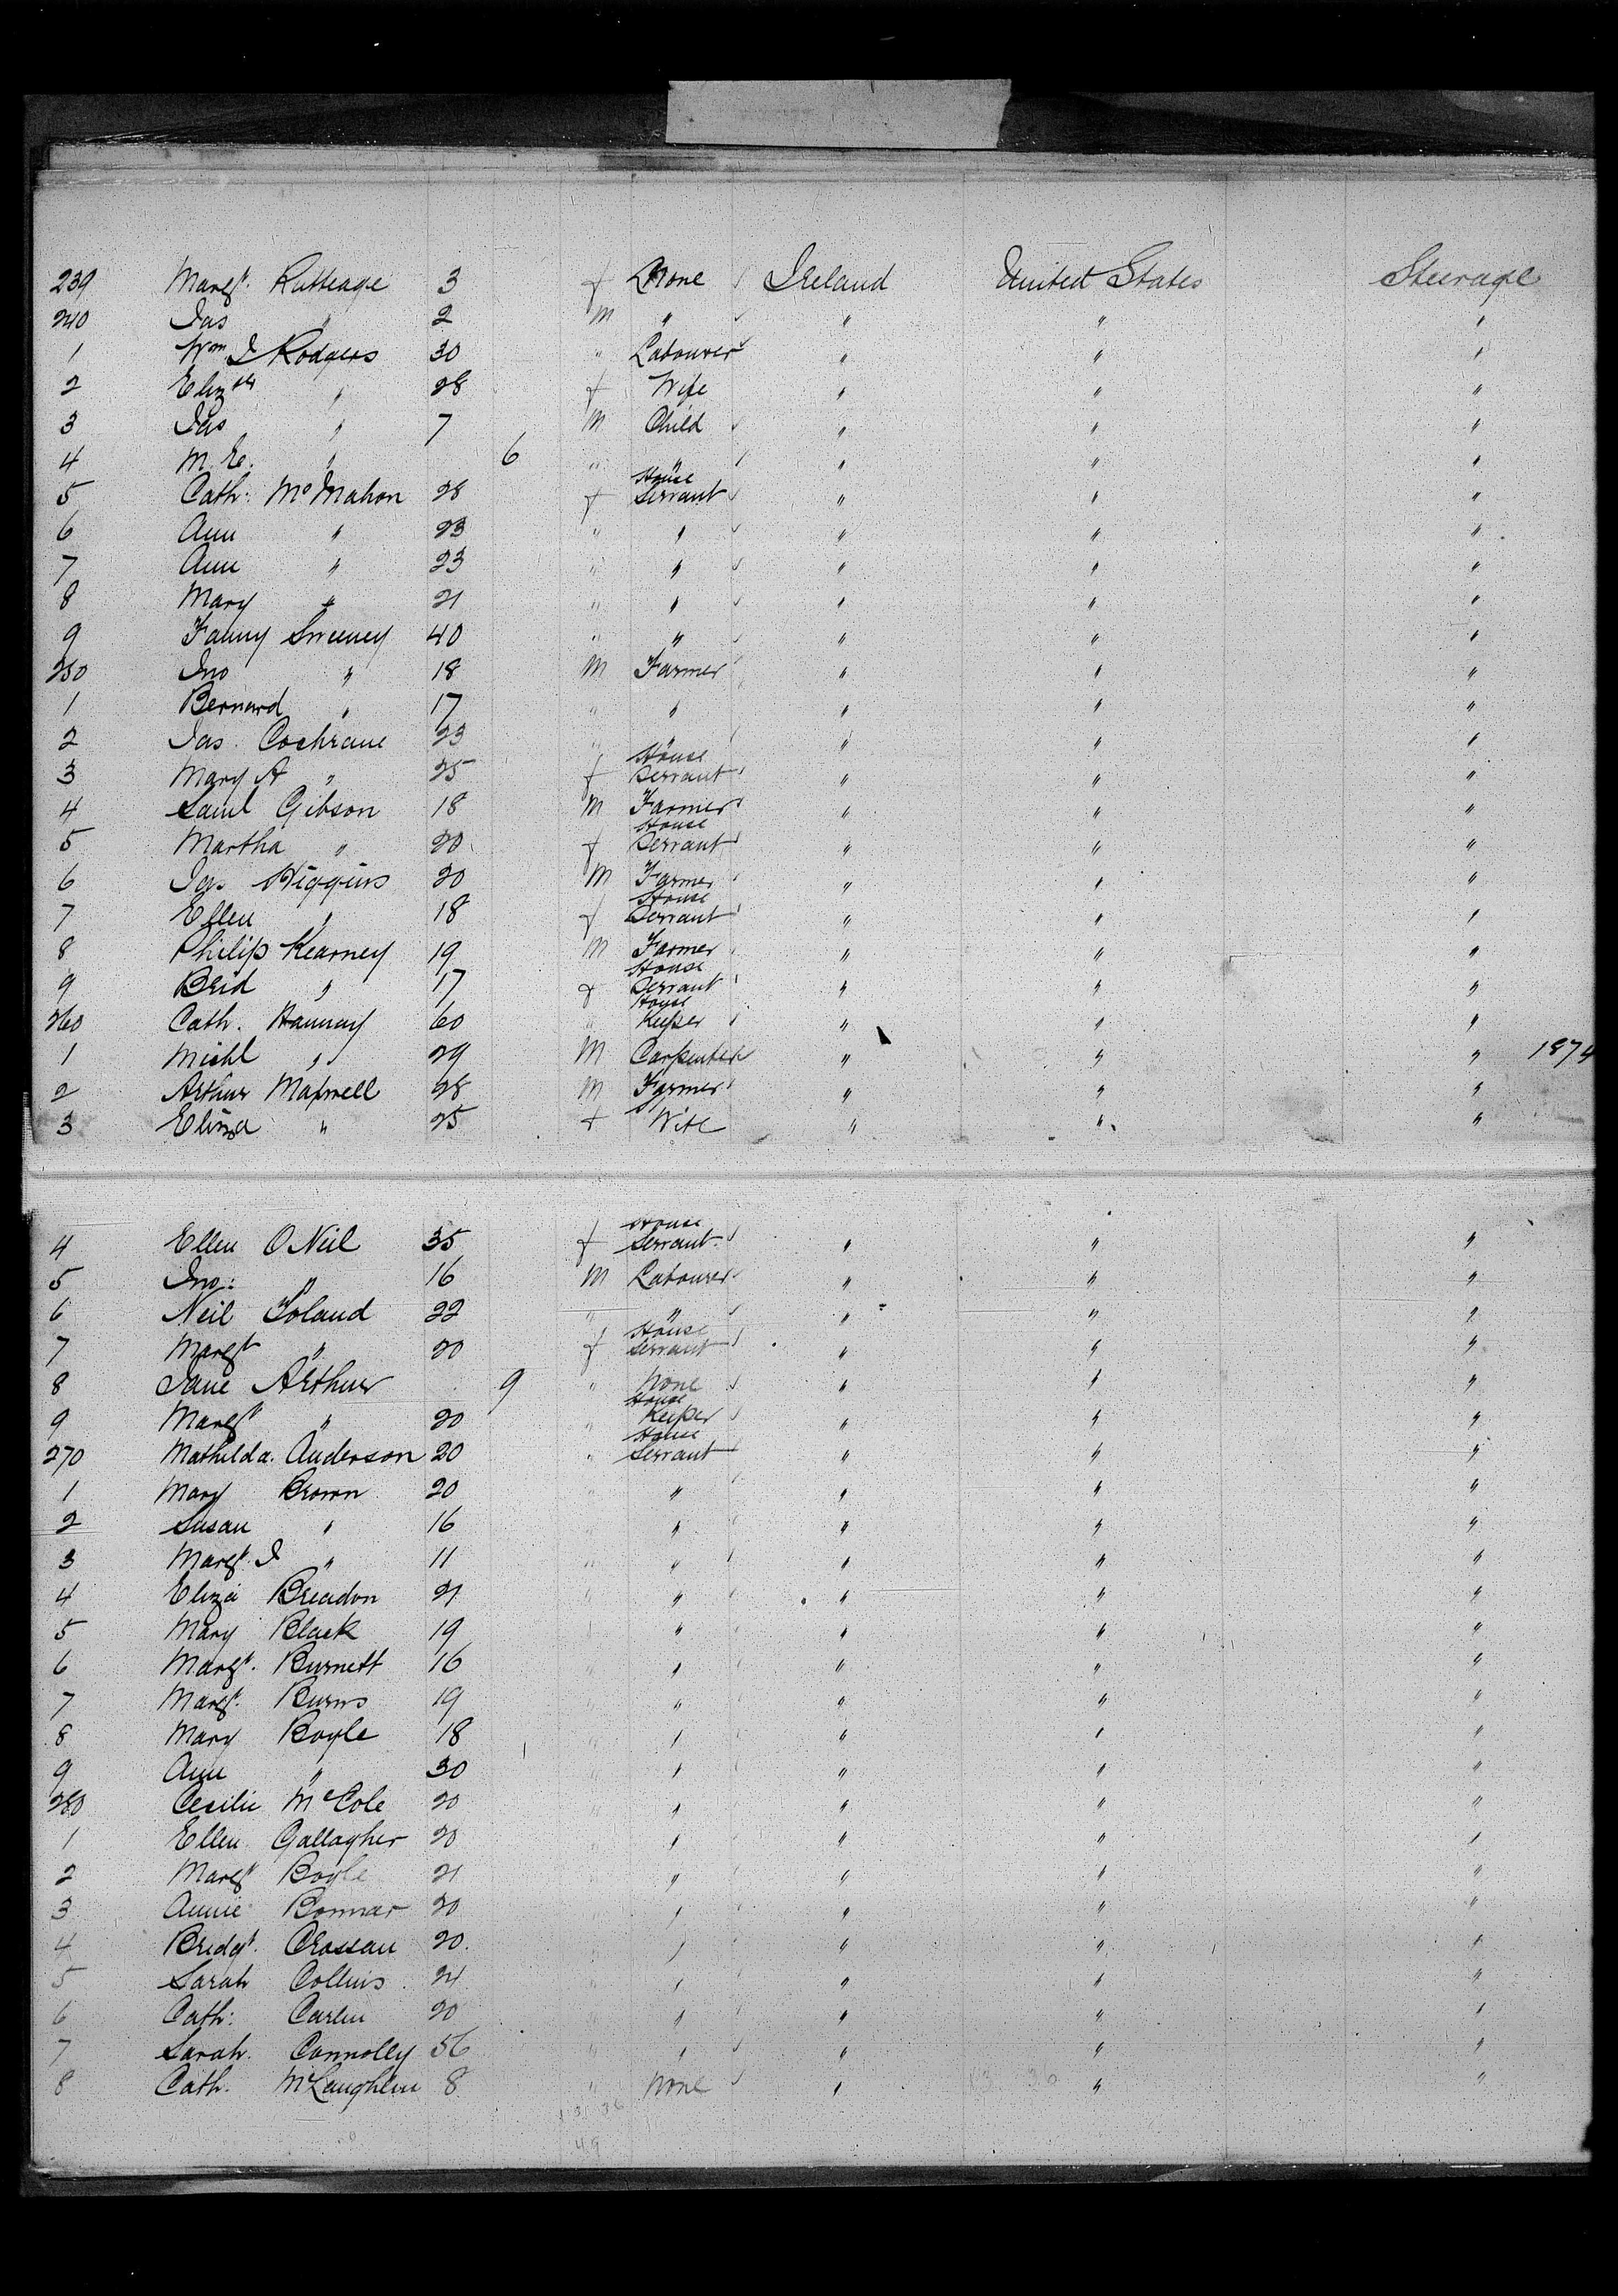 239 Margt. Rutteage 3 f None Ireland United States Steerage
240 Jas " 2 M " " " "
1 Wm J Rodgers 30 " Labourer " " "
2 Elizth " 28 f Wife " " "
3 Jas " 7 M Child " " "
4 M. E. " 6 " " " " "
5 Cath: McMahon 28 f House Servant " " "
6 Ann " 23 " " " " "
7 Ann " 23 " " " " "
8 Mary " 21 " " " " "
9 Fanny Sweeney 40 " " " " "
250 Jno " 18 M Farmer " " "
1 Bernard " 17 " " " " "
2 Jas. Cochrane 23 " " " " "
3 Mary A " 25 f House Servant " " "
4 Saml Gibson 18 M Farmer " " "
5 Martha " 20 f House Servant " " "
6 Jas Higgins 20 M Farmer " " "
7 Ellen " 18 f House Servant " " "
8 Philip Kearney 19 M Farmer " " "
9 Brid " 17 f House Servant " " "
260 Cath. Hannay 60 " House Keeper " " "
1 Michl " 29 M Carpenter " " " 1874
2 Arthur Maxwell 28 M Farmer " " "
3 Eliza " 25 f Wife " " "
4 Ellen O Neil 35 f House Servant " " "
5 Jno: " 16 M Labourer " " "
6 Neil Toland 22 " " " " "
7 Margt " 20 f House Servant " " "
8 Jane Arthur 9 " None " " "
9 Margt " 20 " House Keeper " " "
270 Mathilda. Anderson 20 " House Servant " " "
1 Mary Brown 20 " " " " "
2 Susan " 16 " " " " "
3 Margt. J " 11 " " " " "
4 Eliza Breadon 21 " " " " "
5 Mary Black 19 " " " " "
6 Margt. Burnett 16 " " " " "
7 Margt. Burns 19 " " " " "
8 Mary Boyle 18 " " " " "
9 Ann " 30 " " " " "
280 Cecilie McCole 20 " " " " "
1 Ellen Gallagher 20 " " " " "
2 Margt Boyle 21 " " " " "
3 Annie Bonnar 20 " " " " "
4 Bridgt. Crossan 20. " " " " "
5 Sarah Collins 24 " " " " "
6 Cath: Carlin 20 " " " " "
7 Sarah. Connolly 56 " " " " "
8 Cath. McLaughlin 8 " None " " "
49